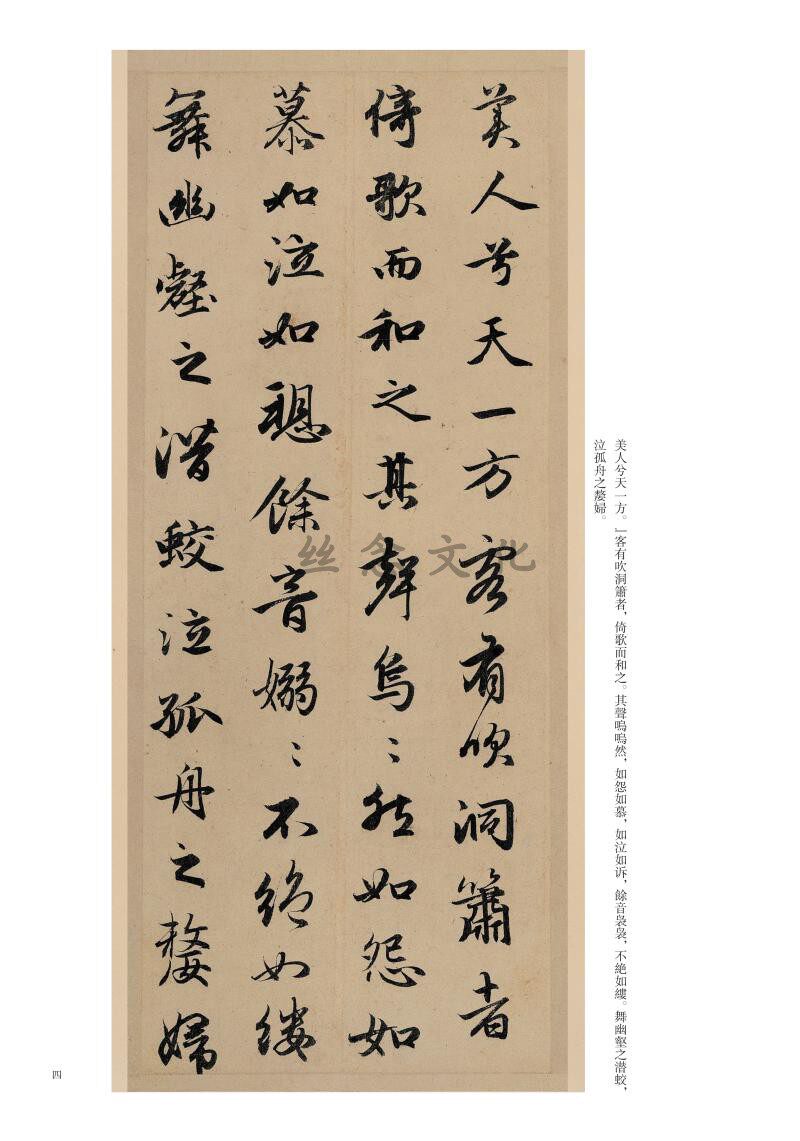 美人兮天一方。」客有吹洞簫者，倚歌而和之。其聲嗚嗚然，如怨如慕，如泣如诉，餘音裊裊，不絶如縷。舞幽壑之潜蛟，
泣孤舟之嫠婦。
美人兮天一方客有吹洞簫者
倚歌而和之其聲烏〻然如怨如
慕如泣如愬餘音嫋〻不絶如縷
舞幽壑之潛蛟泣孤舟之嫠婦
丝念文化
四